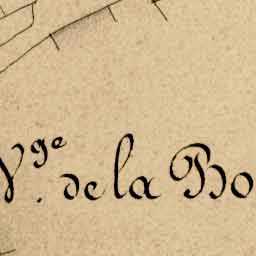 V.ge de la Bo